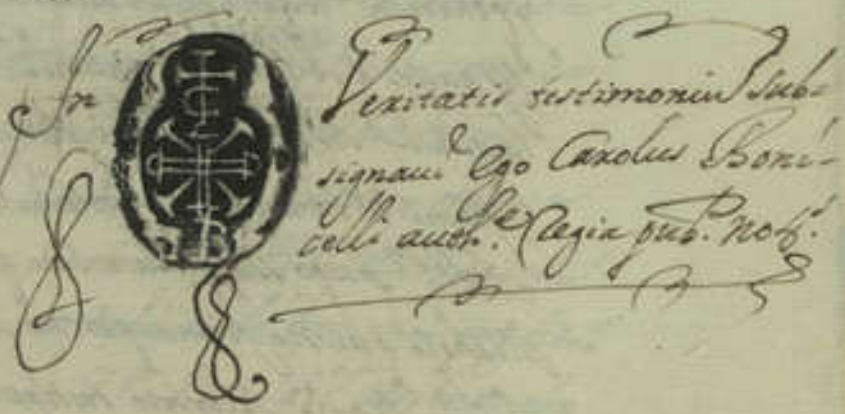 In Veritatis testimoniũ sub-
signaui Ego Carolus Boni-
celli auth.te Regia pub. Not.